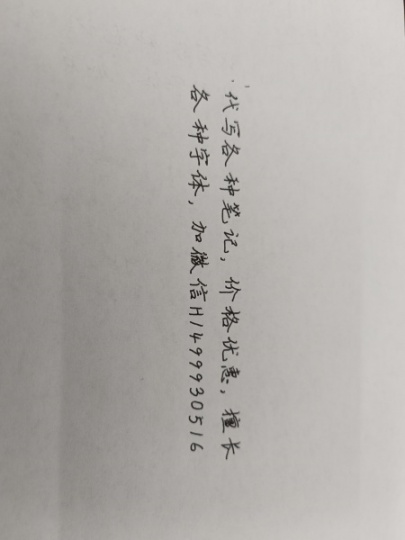 代写各种笔记，价格优惠，擅长
各种字体，加微信H1499930516